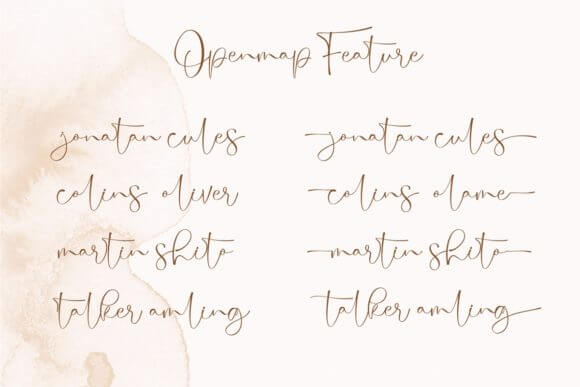 Openmap Feature
jonatan cules jonatan cules
colins oliver colins olame
martin shito martin shito
talker amling talker amling